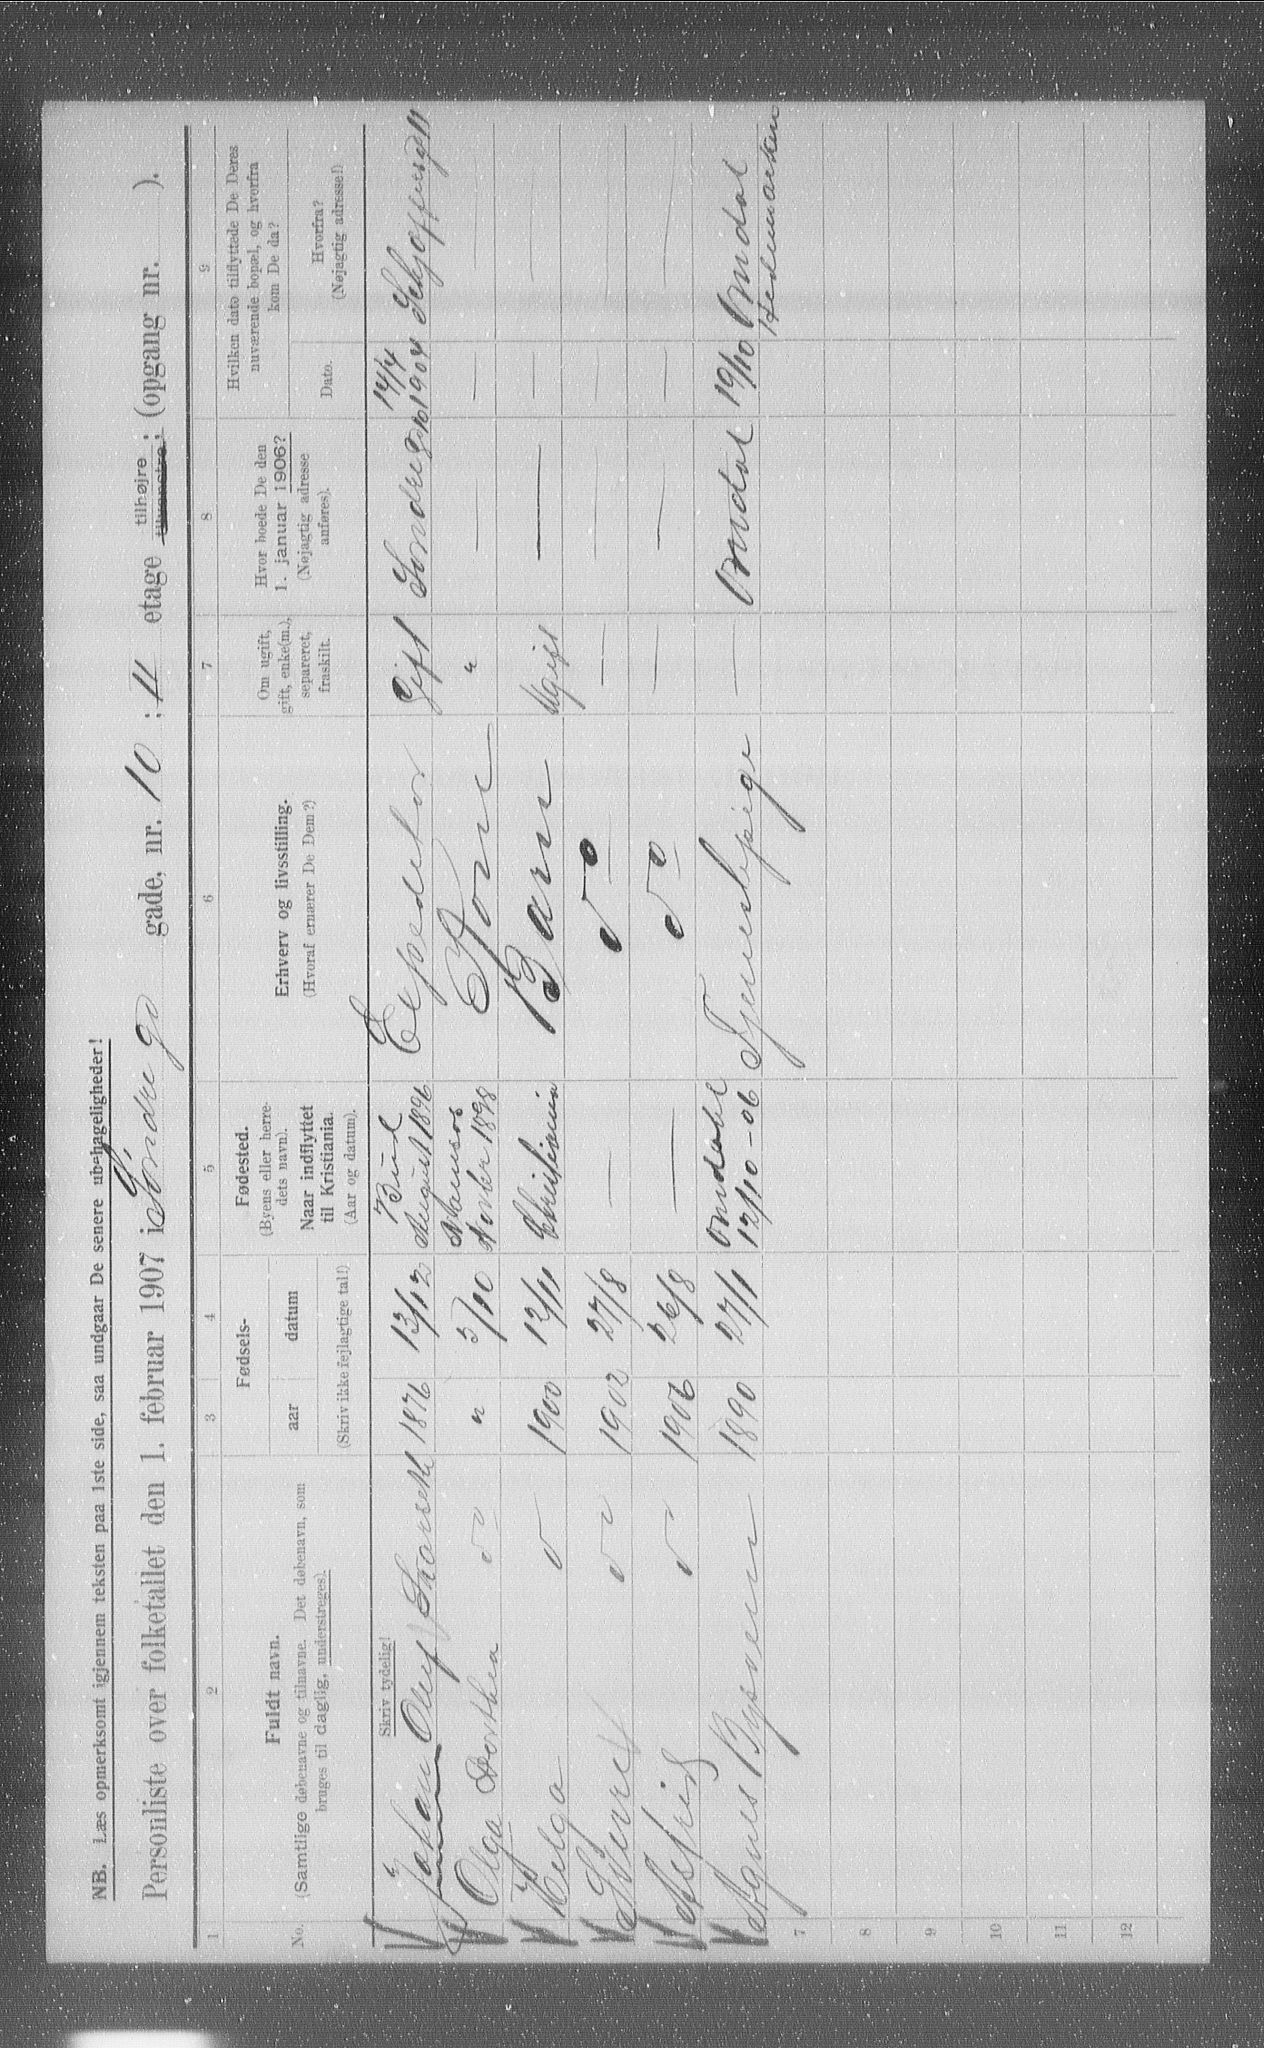 NB. Læs opmerksomt igjennem teksten paa 1ste side, saa undgaar De senere ubehageligheder!
Personliste over folketallet den 1. februar 1907 i Søndre gd gade, nr. 10 : II etage tilhøjre tilvenstre; (opgang nr. ).
1 2 3 4 5 6 7 8 9
No.
Fuldt navn.
(Samtlige døbenavne og tilnavne. Det døbenavn, som
bruges til daglig, understreges).
Skriv tydelig!
Fødsels-
aar datum
(Skriv ikke fejlagtige tal!)
Fødested.
(Byens eller herre-
dets navn).
Naar indflyttet
til Kristiania.
(Aar og datum).
Erhverv og livsstilling.
(Hvoraf ernærer De Dem?)
Om ugift,
gift, enke(m.),
separeret,
fraskilt.
Hvor boede De den
1. januar 1906?
(Nøjagtig adresse
anføres).
Hvilken dato tilflyttede De Deres
nuværende bopæl, og hvorfra
kom De da?
Dato.
Hvorfra?
(Nøjagtig adresse!)
Johan Oluf 1876 13/12 August 1896 Expeditør Gift Søndre gd 10 14/4 1904
Olga Dorthea do " 3/10 1898 Kone " — — —
Helga 1900 12/11 Christiania Barn Ugift — — —
1902 27/8 — do — — — —
1906 26/8 — do — — — —
Agnes 1890 27/1 Omdal 12/10-06 Tjenestepige — Omdal 19/10 Omdal Hedemarken
7
8
9
10
11
12